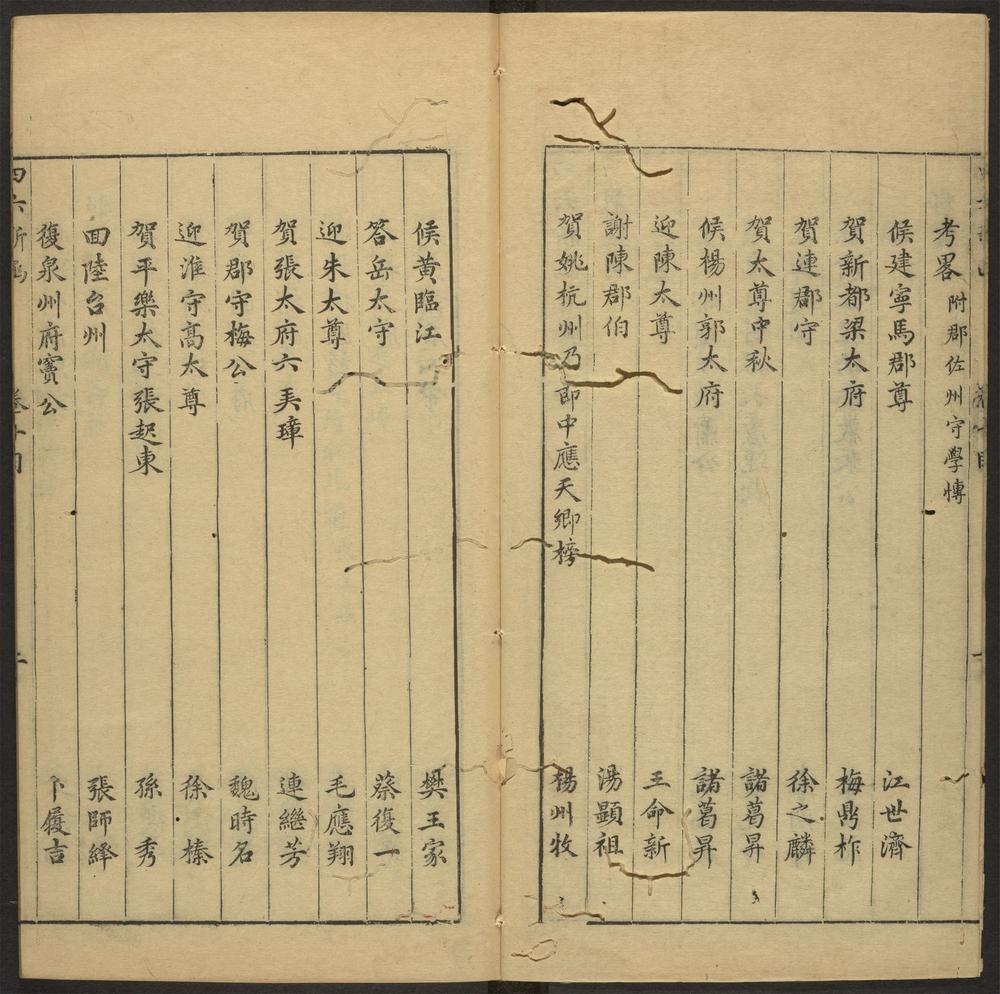 考畧 附郡佐州守學愽
候建寧馬郡尊 江世濟
賀新都梁太府 梅鼎柞
賀連郡守 徐之麟
賀太尊中秋 諸葛昇
候楊州郭太府 諸葛昇
迎陳太尊 王命新
謝陳郡伯 湯顯祖
賀姚杭州乃郎中應天鄉榜 楊州牧
候黃臨江 樊王家
答岳太守 蔡復一
迎朱太尊 毛應翔
賀張太府六美璋 連繼芳
賀郡守梅公 魏時名
迎淮守高太尊 徐榛
賀平樂太守張起東 孫秀
回陸台州 張師繹
復泉州府竇公 卜履吉
四六新函 卷十目 二